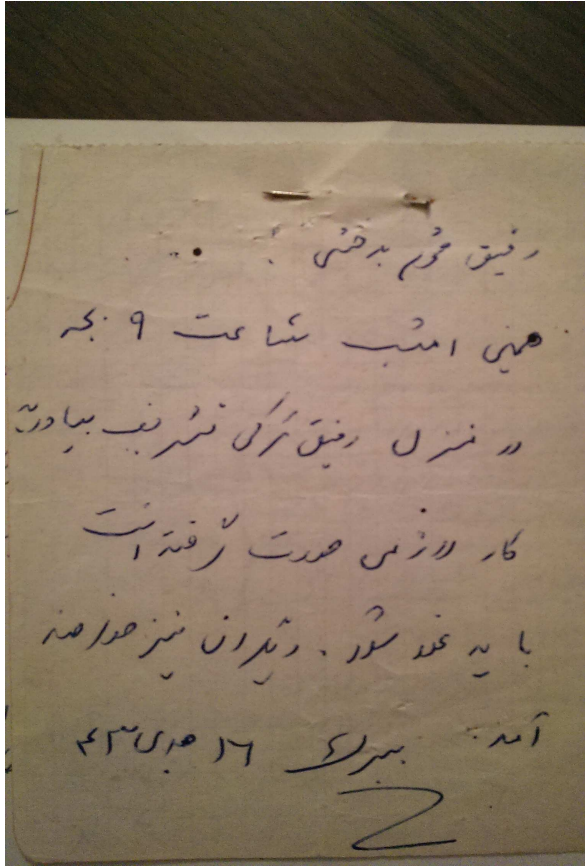 رفیق محترم بدخشی!
همین امشب ساعت ۹ بجه
در منزل رفیق تره کی تشریف بیاورید
کار لازمی صورت گرفته است
باید غور شود. دیگران نیز خواهند
آمد. ببرک ۱۶ جدی ۴۳